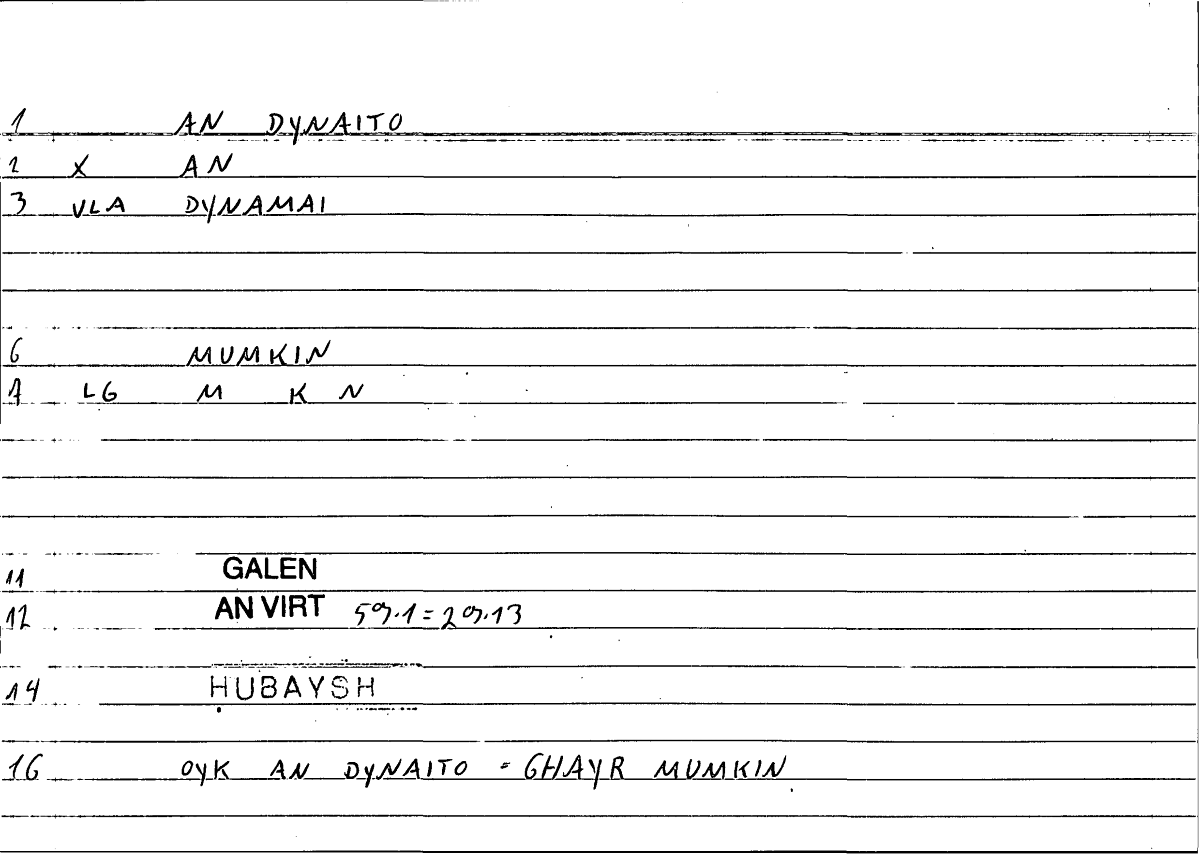 1 AN DYNAITO
2 X AN
3 VLA DYNAMAI
6 MUMKIN
7 LG M K N
11 GALEN
12 AN VIRT 59.1=29.13
14 HUBAYSH
16 OYK AN DYNAITO = GHAYR MUMKIN